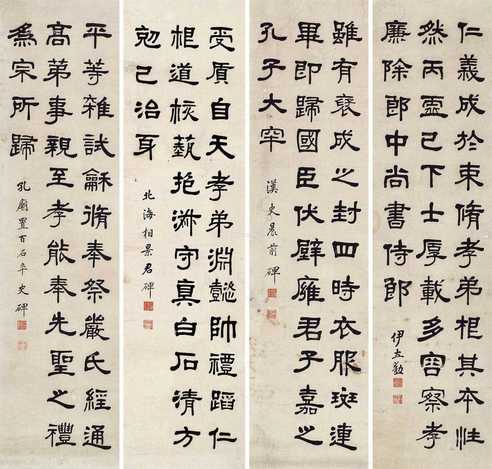 仁義成於束脩孝弟根其本性
然丙盈己下士厚載多容察孝
廉除郎中尚書侍郎
伊立勳
雖有褒成之封四時衣服斑連
畢即歸國臣伏璧廱君子嘉之
孔子大牢
漢史晨前碑
受質自天孝弟淵懿帥禮蹈仁
根道核藝抱淑守真白石清方
勊己治身
北海相景君碑
平等雜試龢脩奉祭嚴氏經通
高弟事親至孝能奉先聖之禮
為宗所歸
孔廟置百石卒史碑